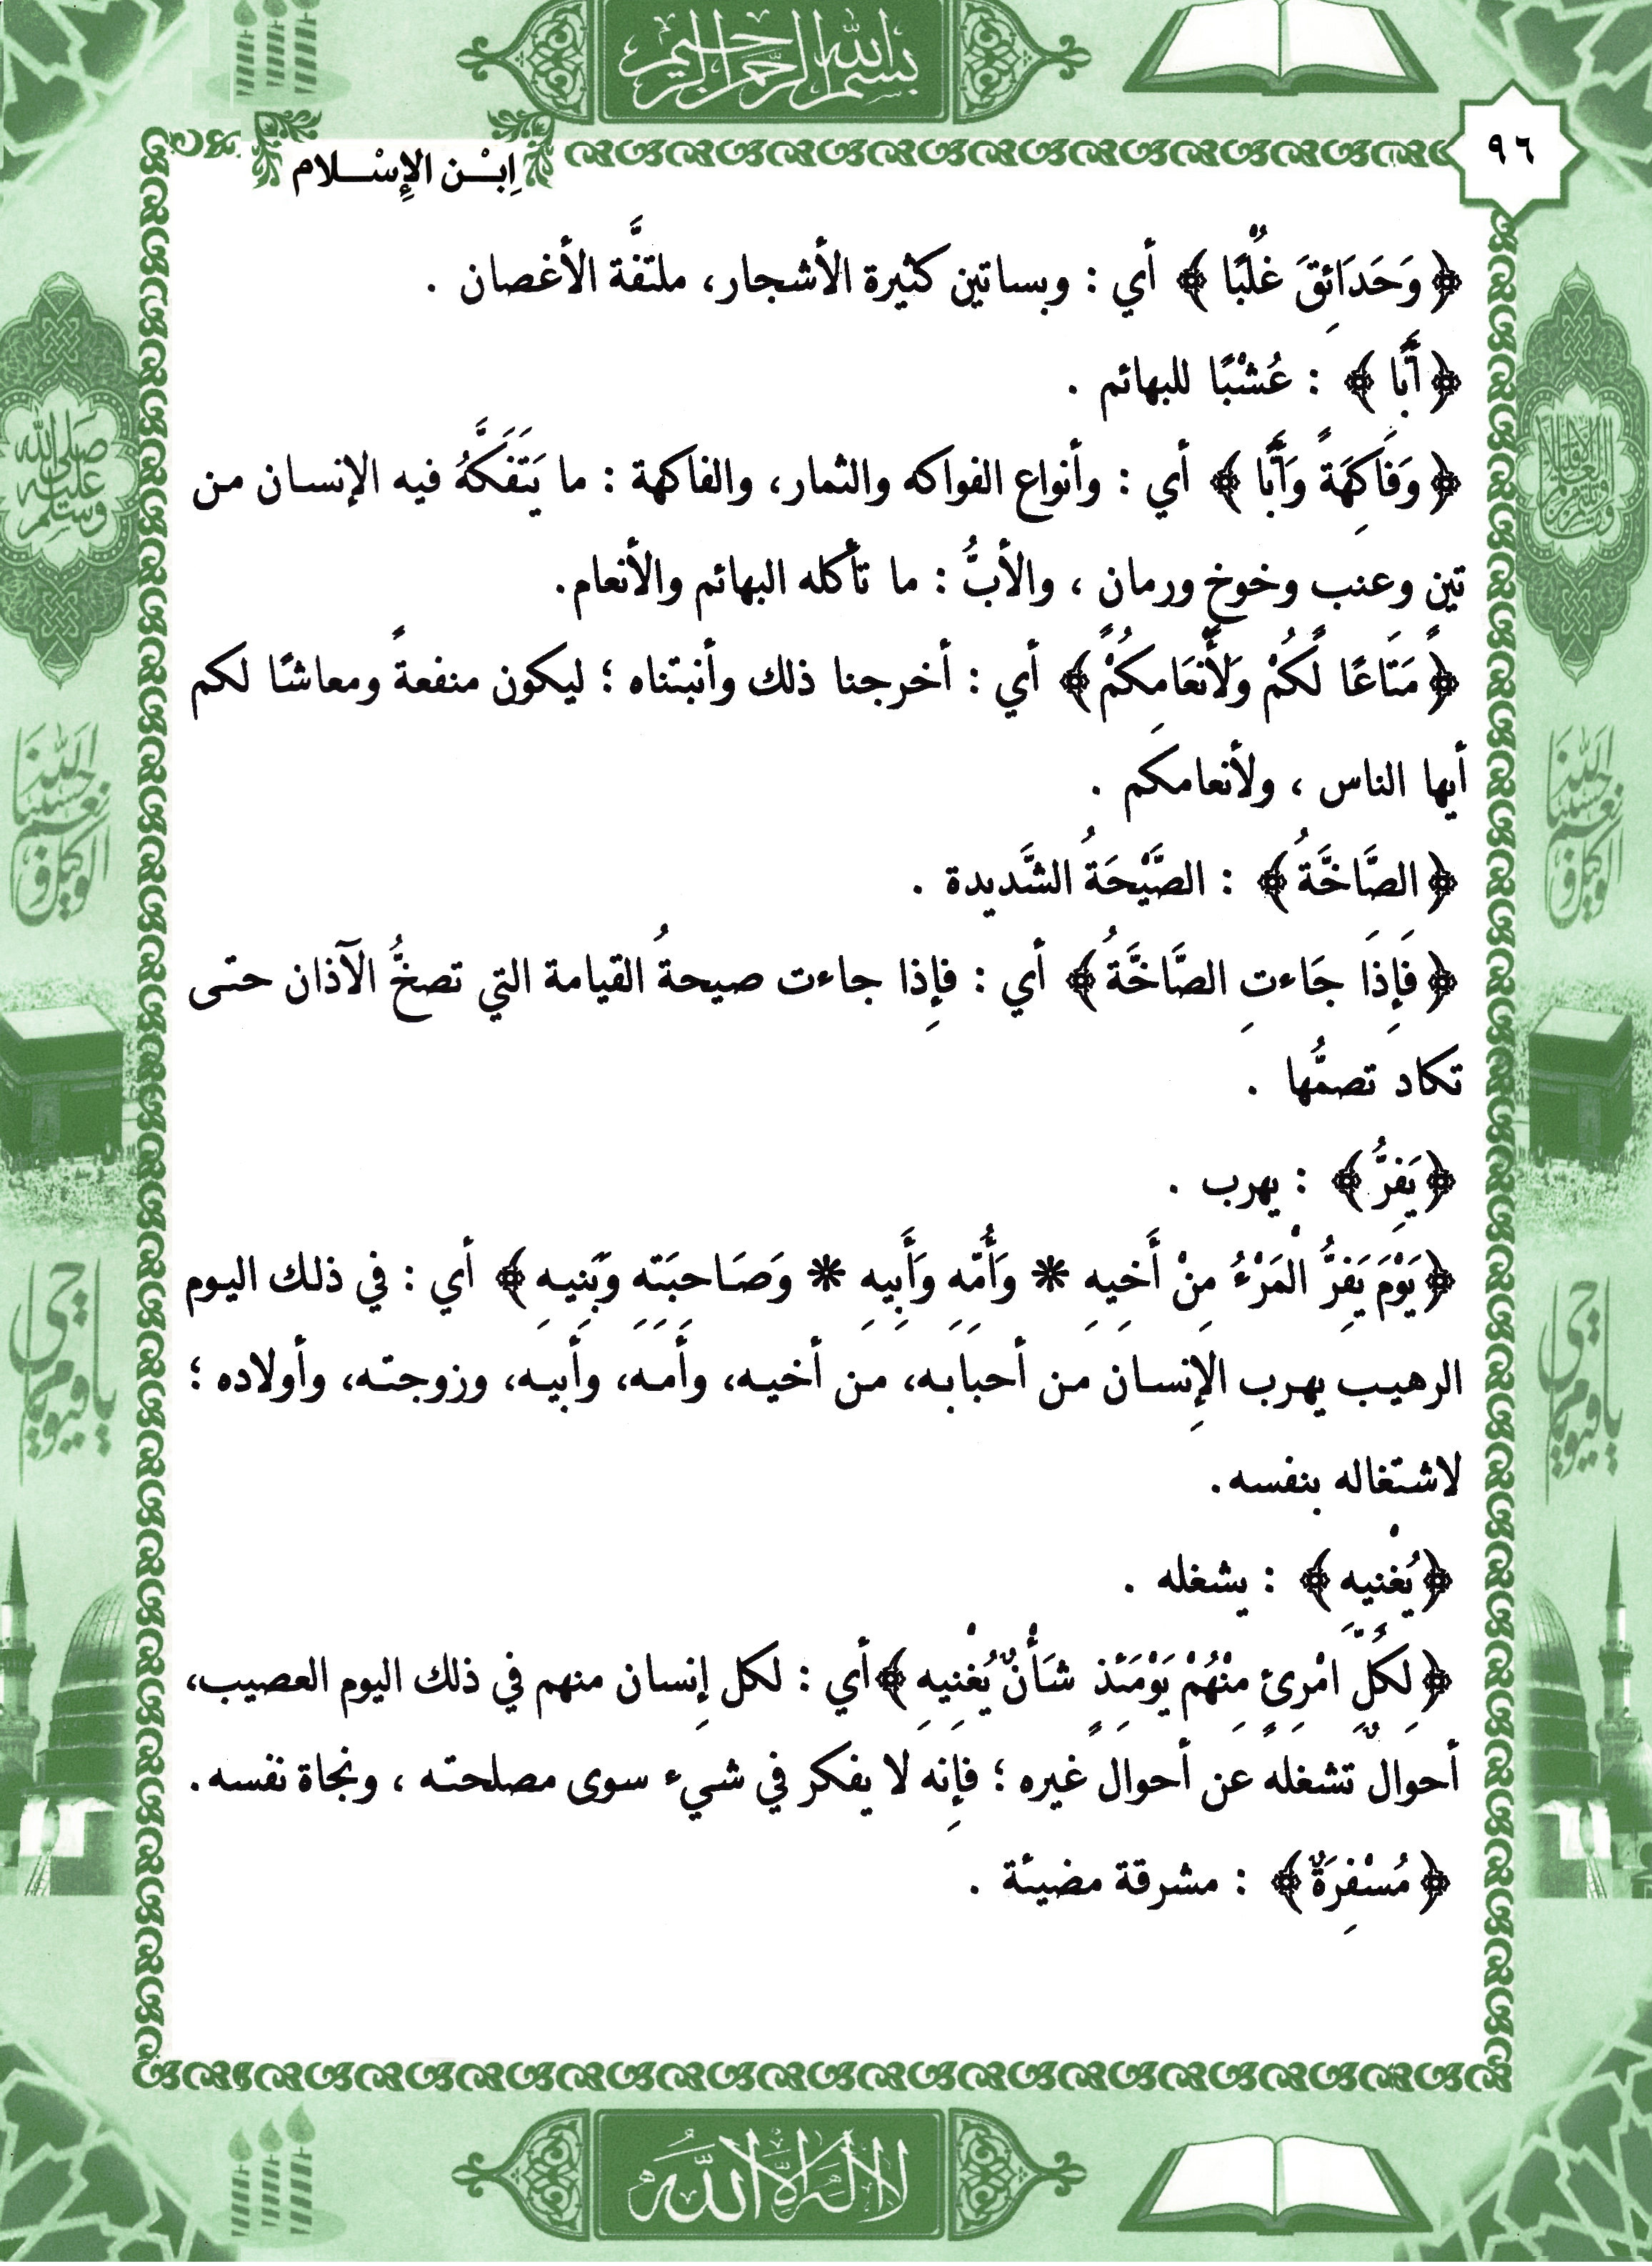 بسم الله الرحمن الرحيم
٩٦
اِبْـن الإِسْـلام
﴿وَحَدَائِقَ غُلْبًا﴾ أي : وبساتين كثيرة الأشجار، ملتفَّة الأغصان .
﴿أَبًّا﴾ : عُشْبًا للبهائم .
﴿وَفَاكِهَةً وَأَبًّا﴾ أي : وأنواع الفواكه والثمار، والفاكهة : ما يَتَفَكَّهُ فيه الإنسان من
تين وعنب وخوخ ورمان ، والأبُّ : ما تأكله البهائم والأنعام.
﴿مَتَاعًا لَكُمْ وَلأَنْعَامِكُمْ﴾ أي : أخرجنا ذلك وأنبتناه ؛ ليكون منفعةً ومعاشًا لكم
أيها الناس ، ولأنعامكم .
﴿الصَّاخَّةُ﴾ : الصَّيْحَةُ الشَّديدة .
﴿فَإِذَا جَاءتِ الصَّاخَّةُ﴾ أي : فإِذا جاءت صيحةُ القيامة التي تصخُّ الآذان حتى
تكاد تصمُّها .
﴿يَفِرُّ﴾ : يهرب .
﴿يَوْمَ يَفِرُّ الْمَرْءُ مِنْ أَخِيهِ * وَأُمِّهِ وَأَبِيهِ * وَصَاحِبَتِهِ وَبَنِيهِ﴾ أي : في ذلك اليوم
الرهيب يهرب الإِنسان من أحبابه، من أخيه، وأمه، وأبيه، وزوجته، وأولاده ؛
لاشتغاله بنفسه.
﴿يُغْنِيهِ﴾ : يشغله .
﴿لِكُلِّ امْرِئٍ مِنْهُمْ يَوْمَئِذٍ شَأْنٌ يُغْنِيهِ﴾ أي : لكل إِنسان منهم في ذلك اليوم العصيب،
أحوالٌ تشغله عن أحوال غيره ؛ فإِنه لا يفكر في شيء سوى مصلحته ، ونجاة نفسه.
﴿مُسْفِرَةٌ﴾ : مشرقة مضيئة .
صلى الله عليه وسلم
حسبنا الله ونعم الوكيل
حسبنا الله ونعم الوكيل
يا حي يا قيوم
يا حي يا قيوم
لا إله إلا الله